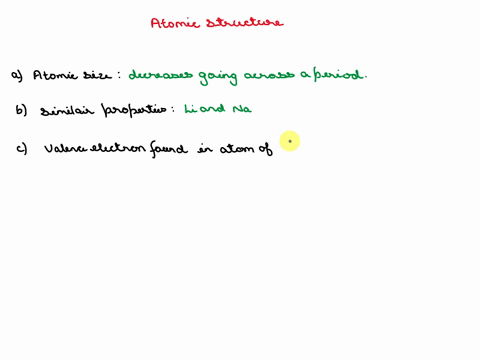 Atomic structure
a) Atomic size : decreases going across a period.
b) similair properties : Li and Na
c) Valence electron found in atom of